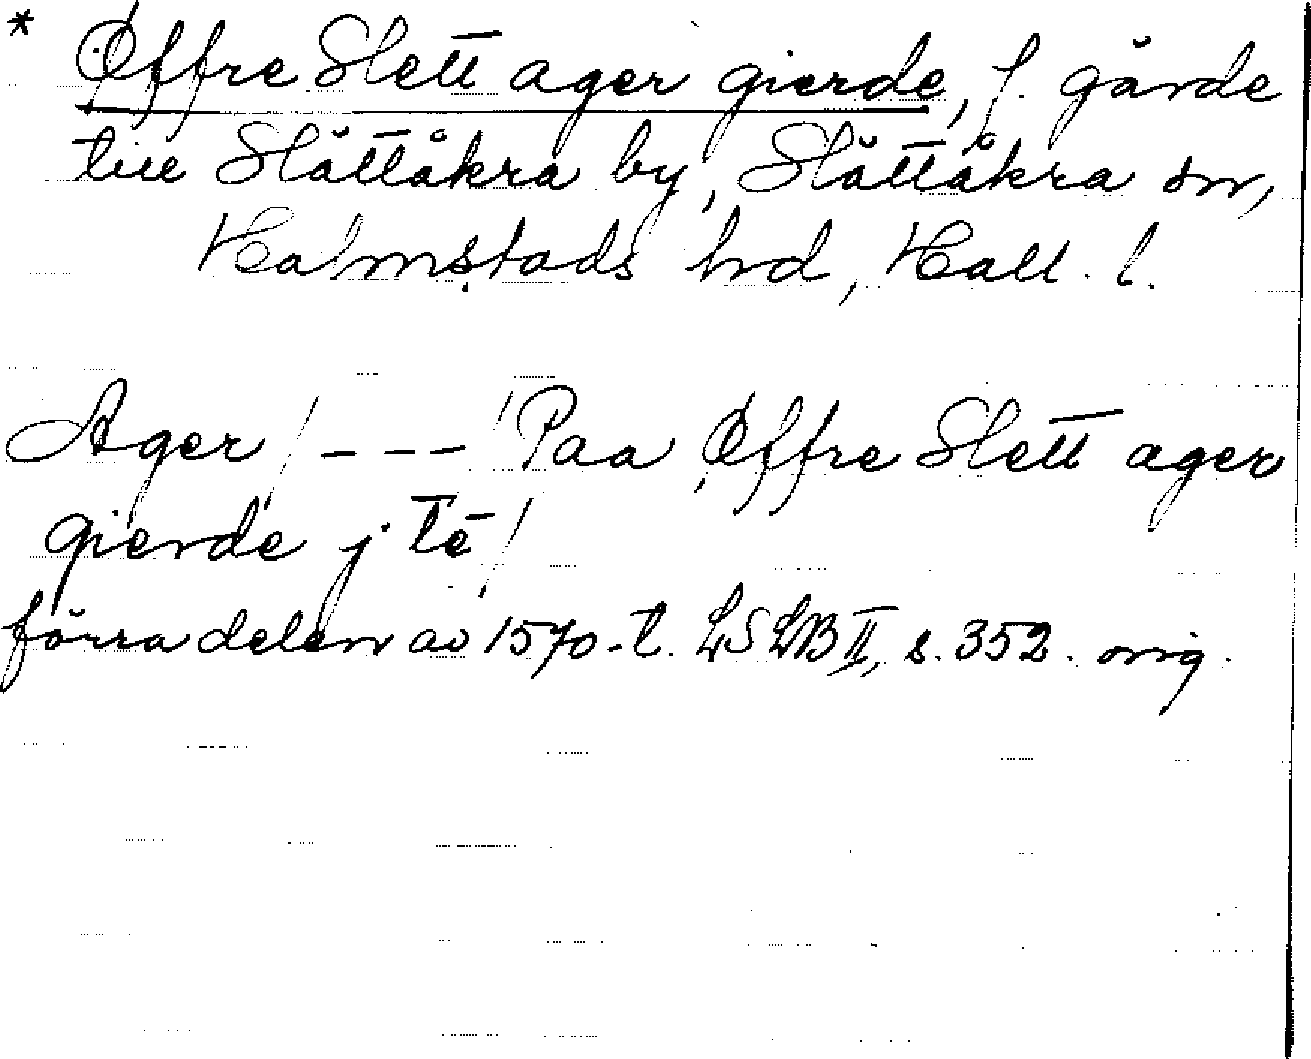 * Øffre Slett ager gierde, f. gärde
till Slättåkra by, Slättåkra sn,
Halmstads hrd, Hall. l.
Ager / - - - / Paa Øffre Slett ager
gierde j te /
förra delen av 1570-t. LSLB II, s. 352. orig.